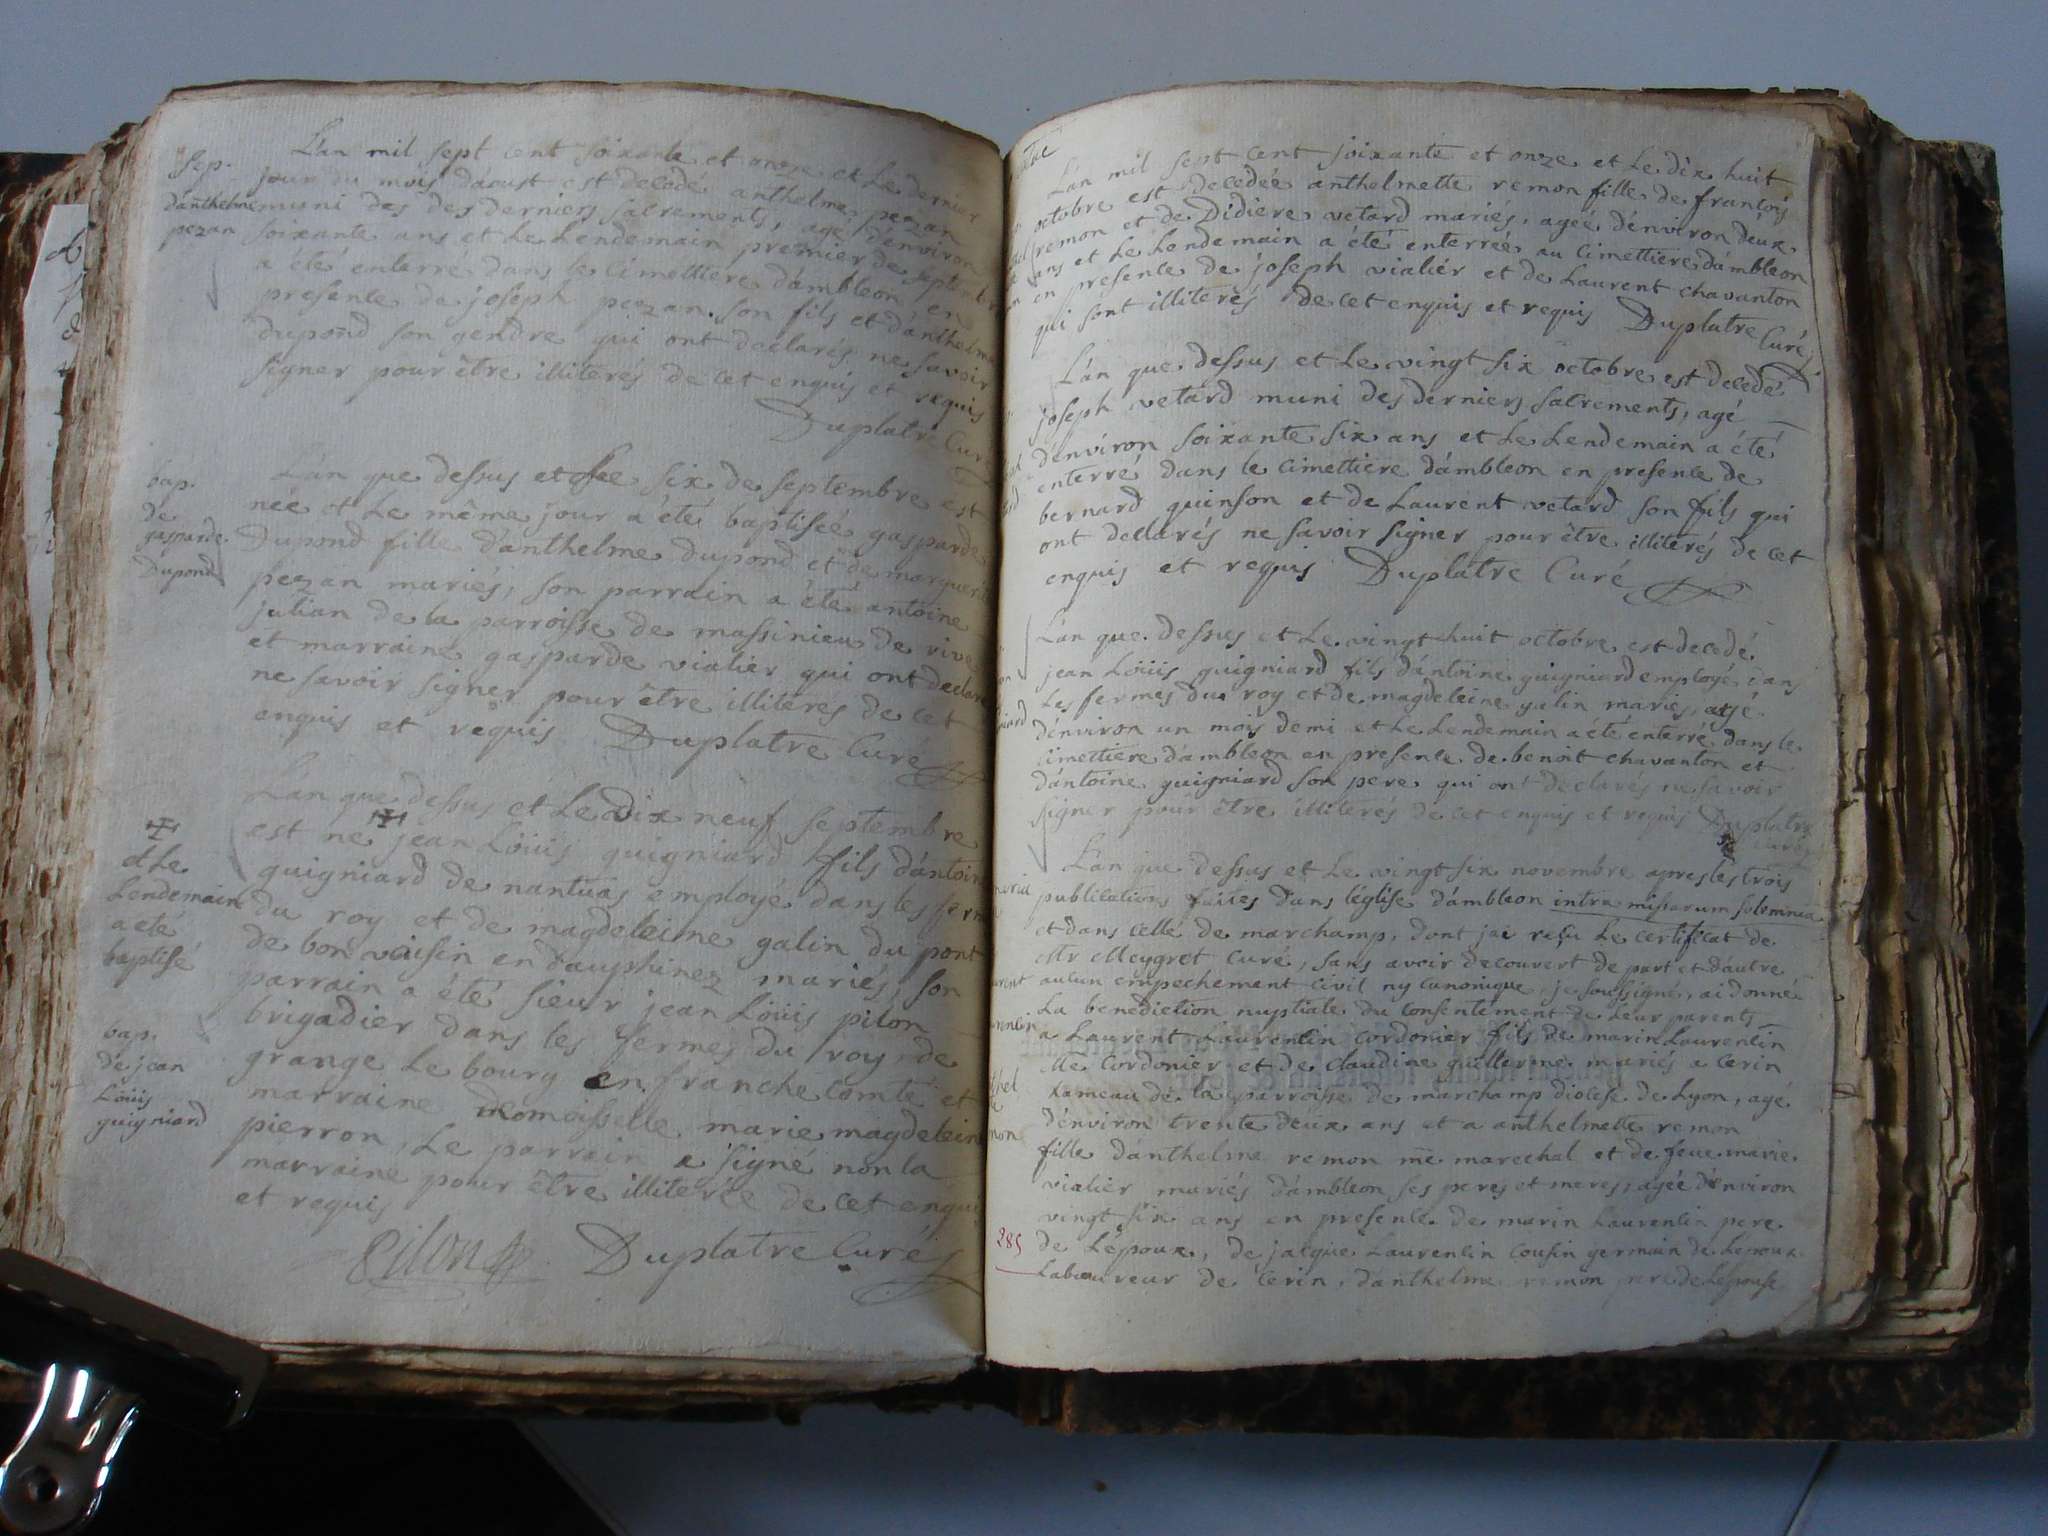 Sep.
d'anthelme
pezan
L'an mil sept cent soixante et onze et Le dernier
jour du mois d'aoust est decedé anthelme pezan
muni des des derniers sacrements, agé d'environ
soixante ans et Le Lendemain premier de septembre
a été enterré dans le cimettiere d'ambleon en
presence de joseph pezan son fils et d'anthelme
dupond son gendre qui ont declarés ne savoir
signer pour être illiterés de cet enquis et requis
Duplatre Curé
bap.
de
gasparde
Dupond
L'an que dessus et Le six de septembre est
née et Le même jour a été baptisée gasparde
Dupond fille d'anthelme Dupond et de marguerite
pezan mariés, son parrain a été antoine
julian de la parroisse de massinieu de rive
et marraine gasparde vialier qui ont declaré
ne savoir signer pour être illiteres de cet
enquis et requis Duplatre Curé
L'an que dessus et Le dix neuf septembre
est né jean Loüis guigniard fils d'antoine
guigniard de nantuas employé dans les fermes
du roy et de magdeleine galin du pont
de bon voisin en dauphinez mariés, son
parrain a été sieur jean Loüis pilon
brigadier dans les fermes du roy de
grange Le bourg en franche comté et
marraine demoisselle marie magdeleine
pierron, Le parrain a signé non la
marraine pour être illiterée de cet enquis
et requis
et Le
Lendemain
a eté
baptisé
bap.
de jean
Loüis
guigniard
Pilon Duplatre Curé
L'an mil sept cent soixante et onze et Le dix huit
octobre est decedée anthelmette remon fille de francois
remon et de Didiere vetard mariés, ageé d'environ deux
ans et Le Lendemain a été enterrée au cimettiere d'ambleon
en presence de joseph vialiér et de Laurent chavanton
qui sont illiterés de cet enquis et requis Duplatre Curé
L'an que dessus et Le vingt six octobre est decedé
joseph vetard muni des derniers sacrements, agé
d'environ soixante six ans et Le Lendemain a été
enterré dans le cimettiere d'ambleon en presence de
bernard quinson et de Laurent vetard son fils qui
ont declarés ne savoir signer pour être illiterés de cet
enquis et requis Duplatre Curé
L'an que dessus et Le vingt huit octobre est decedé
jean Loüis guigniard fils d'antoine guigniard employé dans
Les fermes du roy et de magdeleine galin mariés, agé
d'environ un mois demi et Le Lendemain a été enterré dans le
cimettiere d'ambleon en presence de benoit chavanton et
d'antoine guigniard son pere qui ont declarés ne savoir
signer pour être illiterés de cet enquis et requis Duplatre
curé
L'an que dessus et Le vingt six novembre apres les trois
publications faites dans l'église d'ambleon intra missarum solemnia
et dans celle de marchamp, dont jai reçu Le certificat de
Mr Meygret Curé, sans avoir decouvert de part et d'autre
aucun empechement civil ny canonique, je soussigné, ai donné
La benediction nuptiale du consentement de Leur parents
a Laurent Laurentin cordonier fils de marin Laurentin
Me Cordonier et de claudine guillerme mariés a Cerin
hameau de la parroisse de marchamp diocese de Lyon, agé
d'environ trente deux ans et a anthelmette remon
fille d'anthelme remon me marechal et de feue marie
vialier mariés d'ambleon ses peres et meres, agée d'environ
vingt six ans en presence de marin Laurentin pere
de L'époux, de jacque Laurentin cousin germain de L'epoux
Laboureur de Cerin, d'anthelme remon pere de L'epouse
285